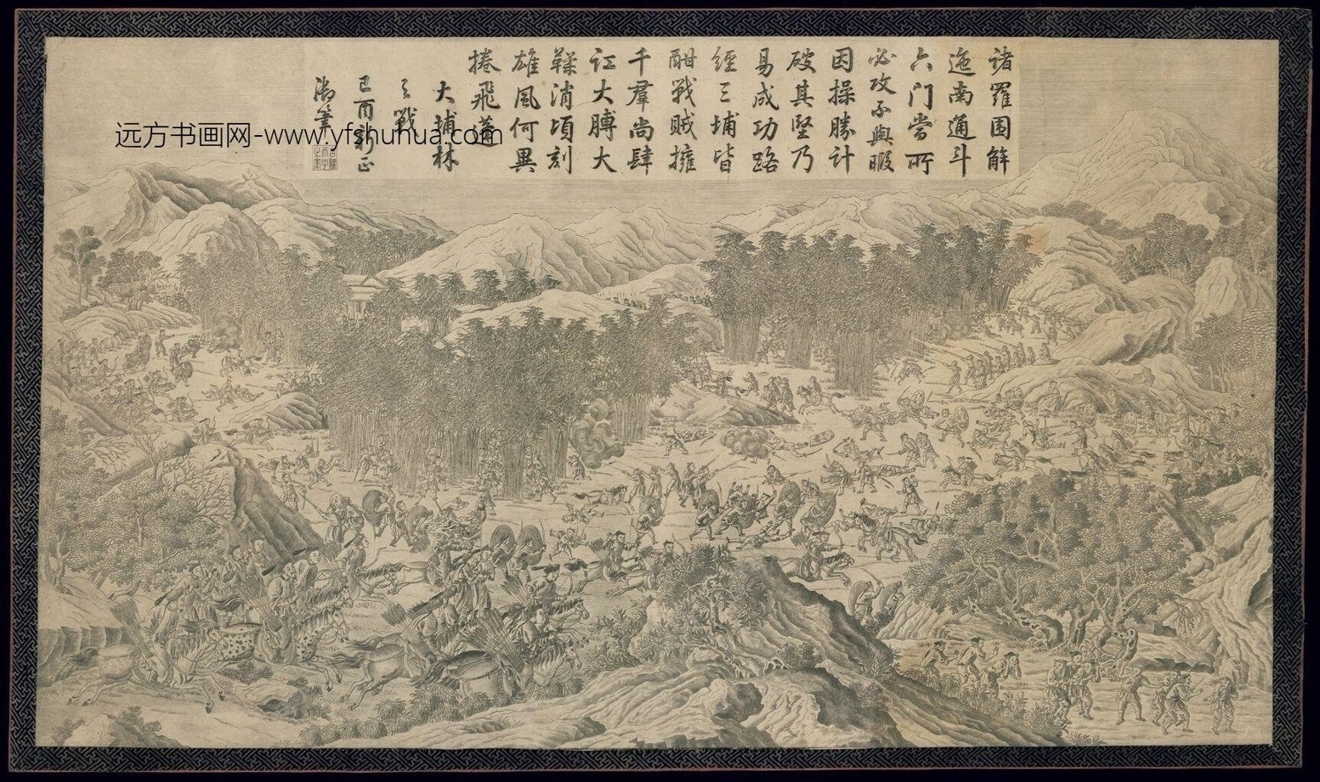 諸羅围解
迤南通斗
六門嘗所
必攻不與暇
因操勝計
破其堅乃
易成功路
經三埔皆
酣戰賊擁
千羣尚肆
讧大膊大
鞣消頃刻
雄風何異
捲飛蓬
大埔林
之戰
己酉新正
御筆
远方书画网-www.yfshuhua.com